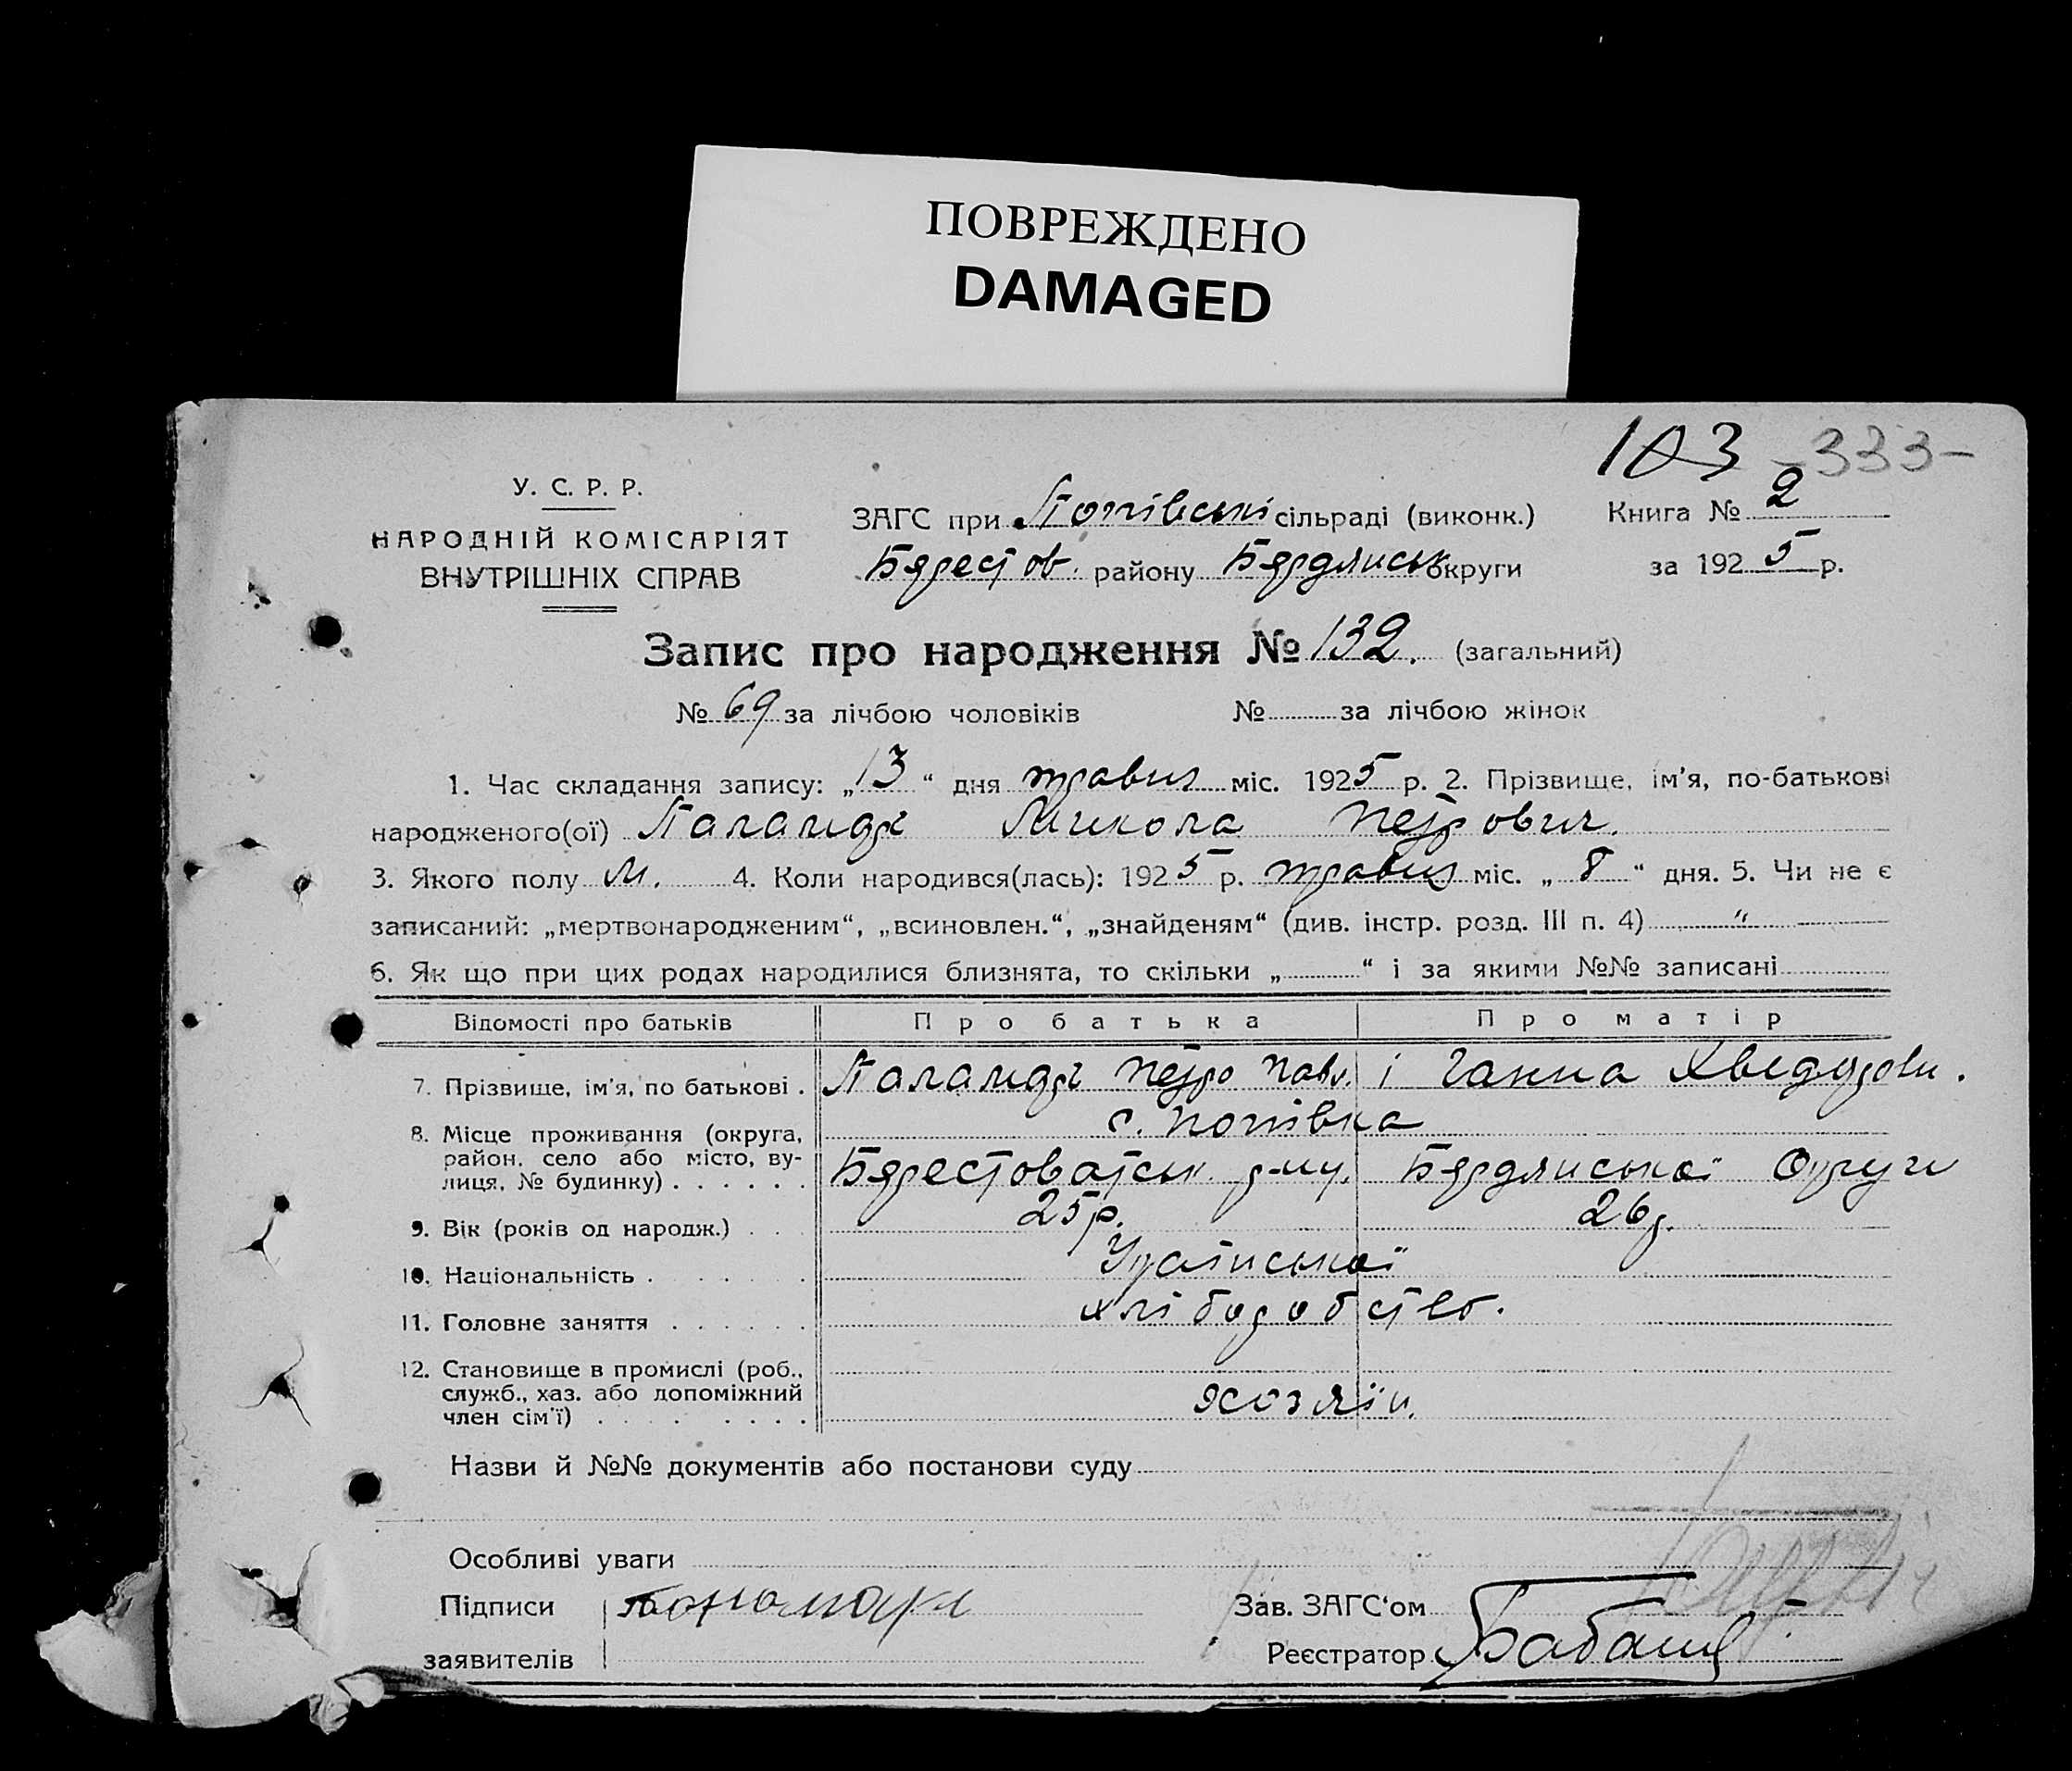 ПОВРЕЖДЕНО
DAMAGED
103 -333-
У. С. Р. Р.
НАРОДНІЙ КОМІСАРІЯТ
ВНУТРІШНІХ СПРАВ
ЗАГС при Попівські сільраді (виконк.)
Бересто́в. району Бердянськ округи
Книга № 2
за 1925 р.
Запис про народження № 132. (загальний)
№ 69 за лічбою чоловіків № за лічбою жінок
1. Час складання запису: „13“ дня травня міс. 1925 р. 2. Прізвище, ім'я, по-батькові
народженого(ої) Паламар Микола Петрович.
3. Якого полу м. 4. Коли народився(лась): 1925 р. травня міс. „8“ дня. 5. Чи не є
записаний: „мертвонародженим“, „всиновлен.“, „знайденям“ (див. інстр. розд. III п. 4) "
6. Як що при цих родах народилися близнята, то скільки „ “ і за якими №№ записані
Відомості про батьків Про батька Про матір
7. Прізвище, ім'я, по батькові . Петро Павл. і Ганна Хведоровн.
8. Місце проживання (округа, район, село або місто, вулиця, № будинку) . . . . . . с. Попівка
Берестоватськ. р-ну. Бердянської Округи
9. Вік (років од народж.) . . . 25 р. 26 р.
10. Національність . . . . . . Української
11. Головне заняття . . . . . . хліборобство.
12. Становище в промислі (роб., служб., хаз. або допоміжний член сім'ї) . . . . . . . . хозяїн.
Назви й №№ документів або постанови суду
Особливі уваги
Підписи
заявителів
Зав. ЗАГС‘ом
Реєстратор